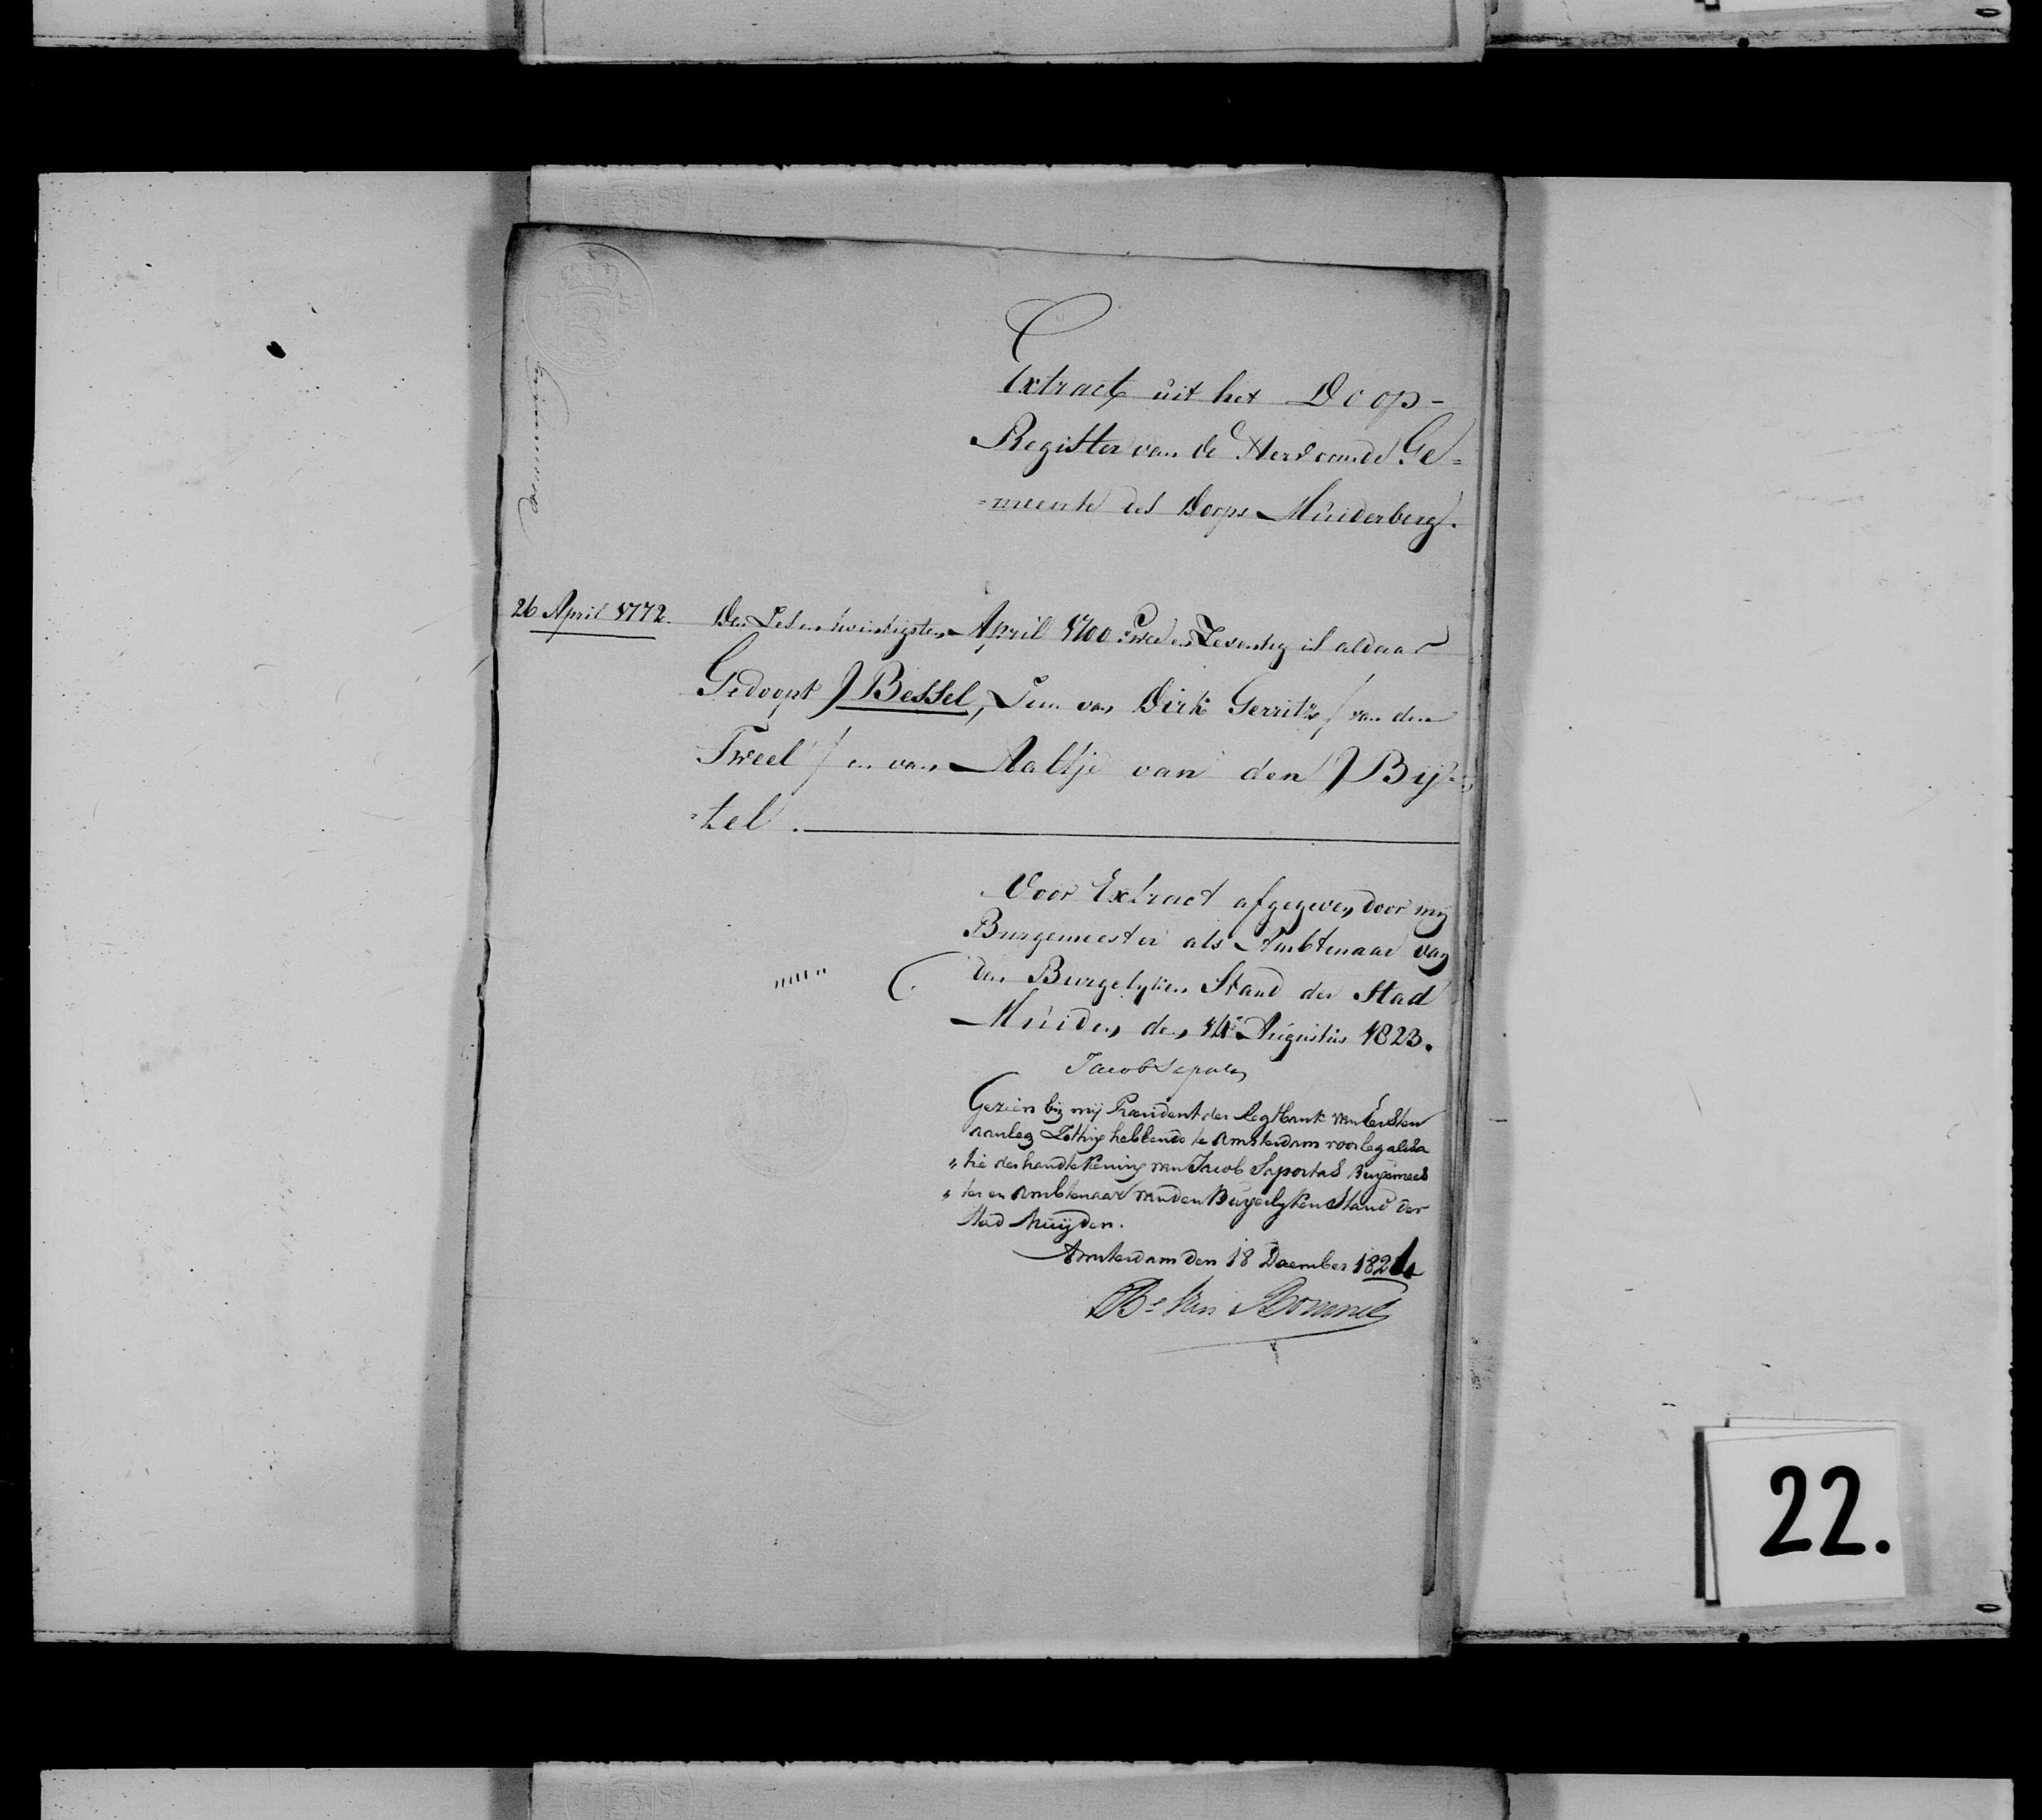 Extract uit het Doop-
Register van de Hervormde Ge=
=meente des Dorps Muiderberg.
26 April 1772.
Den Zes en twintigsten April 1700 twee en Zeventig is aldaar
Gedoopt Bessel, Zoon van Dirk Gerritz / van den
Tweel / en van Aaltje van den Bij=
=tel.
Voor Extract afgegeven door mij
Burgemeester als Ambtenaar van
den Burgelyken Stand der Stad
Muiden, den 14e Augustus 1823.
Jacob Saportas
Gezien bij mij President der Regtbank van Eersten
aanleg Zitting hebbende te Amsterdam voor legalisa
"tie der handtekening van Jacob Saportas Burgemees
"ter en Ambtenaar van den Burgerlyken Stand der
Stad Muijden.
Amsterdam den 18 December 1824
Van Bommel
22.